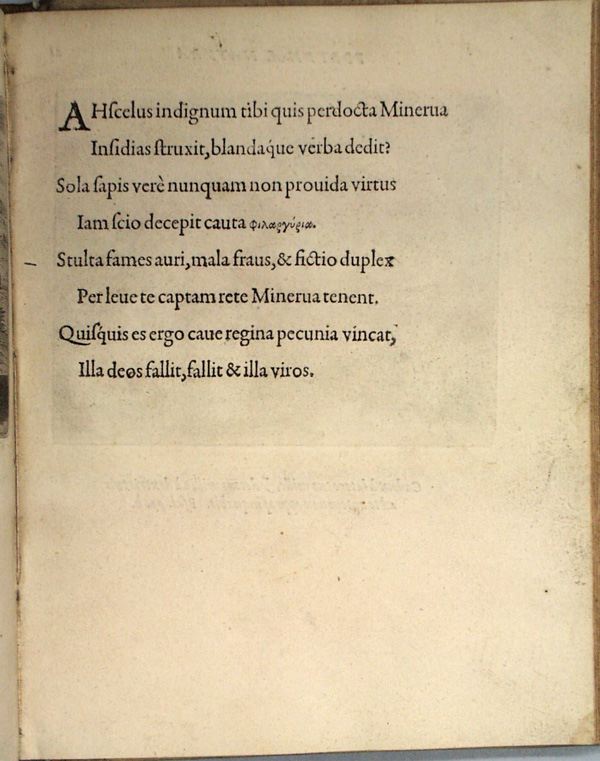 AH scelus indignum tibi quis perdocta Minerua
Insidias struxit, blandaque verba dedit?
Sola sapis verè nunquam non prouida virtus
Iam scio decepit cauta φιλαργύρια.
Stulta fames auri, mala fraus, & fictio duplex
Per leue te captam rete Minerua tenent.
Quisquis es ergo caue regina pecunia vincat,
Illa deos fallit, fallit & illa viros.